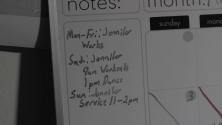 notes:
month:
sunday
mon
Mon-Fri: Jennifer
Works
Sat: Jennifer
9am Workouts
1pm Dance
Sun: Jennifer
Service 11-2pm
3